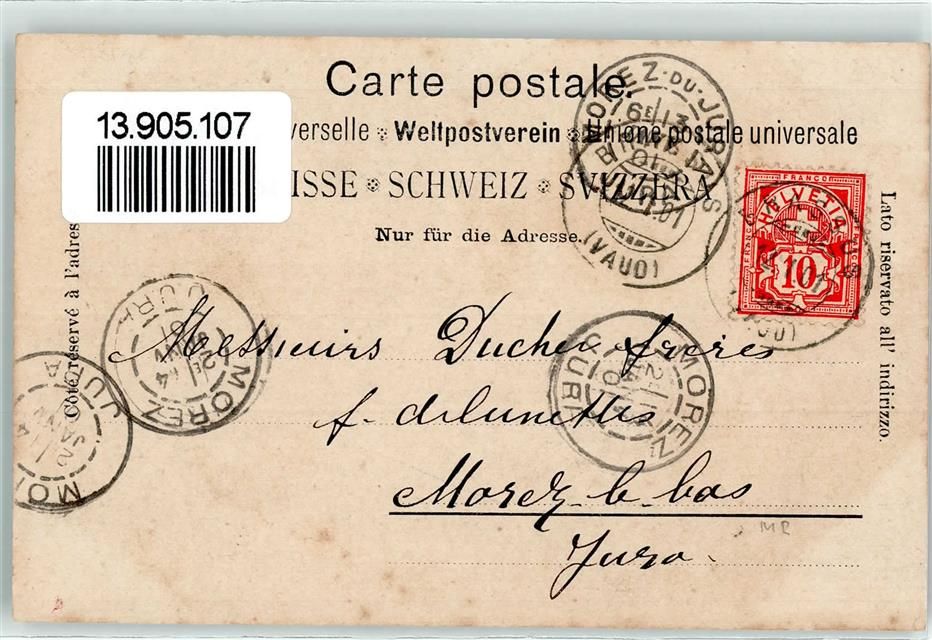 Carte postale.
13.905.107
verselle Weltpostverein Unione postale universale
ISSE SCHWEIZ SVIZZERA
Nur für die Adresse.
Côté réservé à l'adres
Lato riservato all' indirizzo.
MOREZ-DU-JURA
(VAUD)
FRANCO
HELVETIA
10
Messieurs Duchen frères
f. de lunettes
Morez-le-bas
Jura.
MR
MOREZ
JURA
MOREZ
JURA
MO
JU